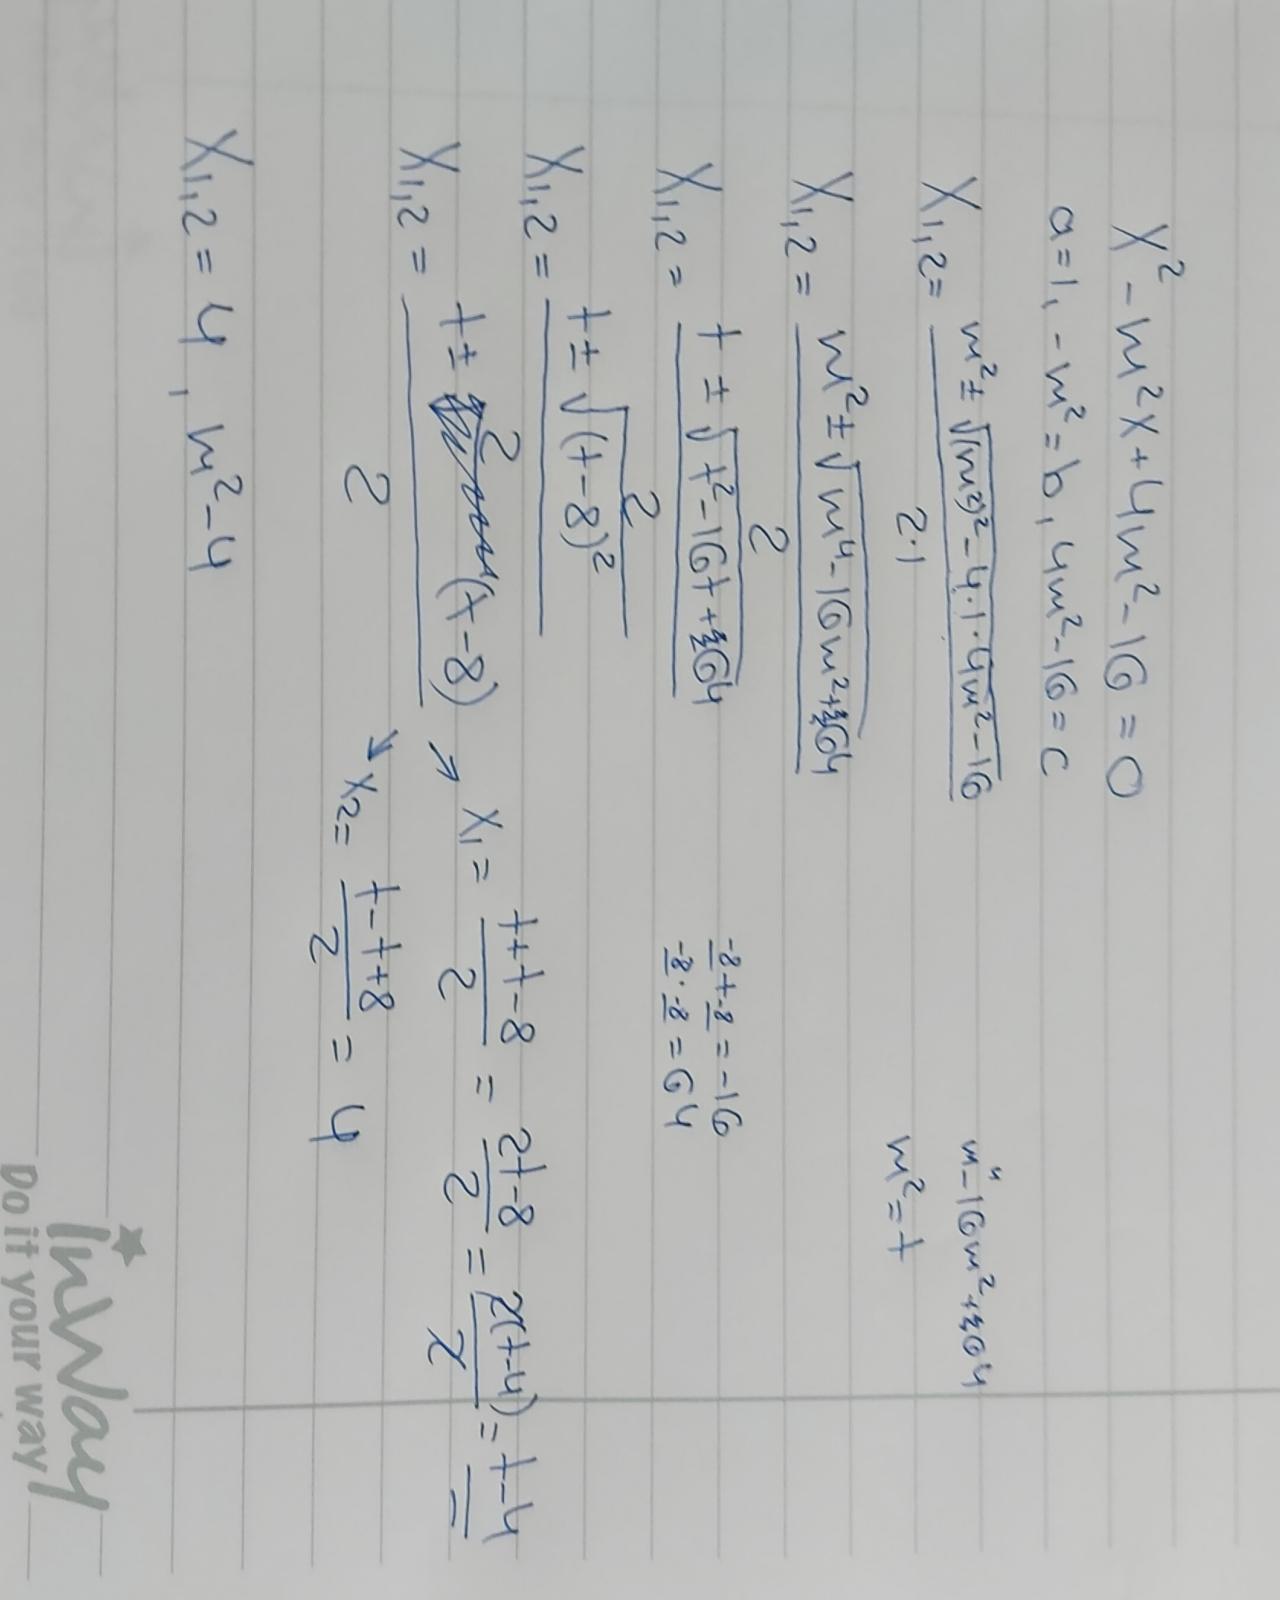 x² - m²x + 4m² - 16 = 0
a = 1, -m² = b, 4m² - 16 = c
x₁,₂ = (m² ± √((m²)² - 4·1·4m² - 16)) / (2·1)
m⁴ - 16m² + 64
m² = t
x₁,₂ = (m² ± √(m⁴ - 16m² + 64)) / 2
x₁,₂ = (t ± √(t² - 16t + 64)) / 2
-8 + -8 = -16
-8 · -8 = 64
x₁,₂ = (t ± √((t-8)²)) / 2
x₁,₂ = (t ± (t-8)) / 2
x₁ = (t+t-8) / 2 = (2t-8) / 2 = 2(t-4) / 2 = t-4
x₂ = (t-t+8) / 2 = 4
x₁,₂ = 4, m² - 4
inWay
Do it your way